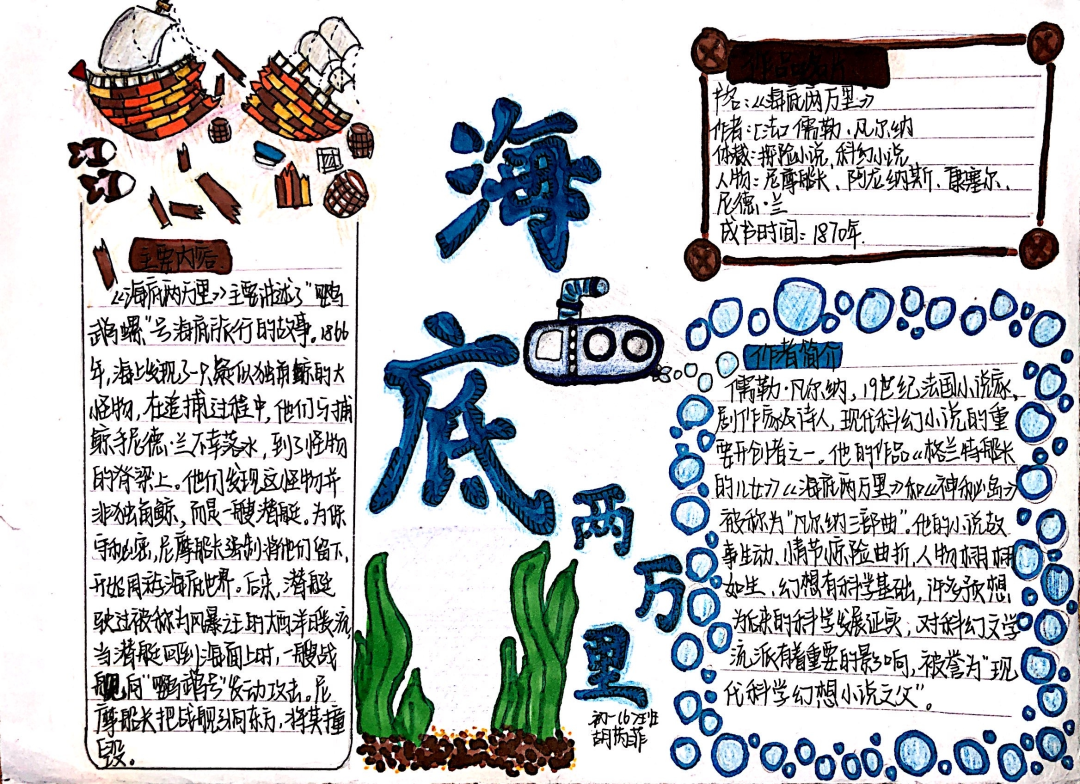 主要内容
《海底两万里》主要讲述了“鹦
鹉螺”号海底旅行的故事。1866
年,海上发现了一只疑似独角鲸的大
怪物,在追捕过程中,他们与捕
鲸手尼德·兰不幸落水,到了怪物
的脊梁上。他们发现这怪物并
非独角鲸,而是一艘潜艇。为保
守秘密,尼摩船长强制将他们留下,
开始周游海底世界。后来,潜艇
驶过被称为风暴之王的大西洋暖流,
当潜艇回到海面上时,一艘战
舰向“鹦鹉号”发动攻击。尼
摩船长把战舰引向东方,将其撞
毁。
海
底
两
万
里
初一(6)班
胡
菲
作品名片
书名:《海底两万里》
作者:[法]儒勒·凡尔纳
体裁:探险小说,科幻小说
人物:尼摩船长、阿龙纳斯、康塞尔、
尼德·兰
成书时间:1870年.
作者简介
儒勒·凡尔纳,19世纪法国小说家,
剧作家及诗人,现代科幻小说的重
要开创者之一。他的作品《格兰特船长
的儿女》《海底两万里》和《神秘岛》
被称为“凡尔纳三部曲”。他的小说故
事生动、情节惊险曲折,人物栩栩
如生,幻想有科学基础,许多预想
为后来的科学发展证实,对科幻文学
流派有着重要的影响,被誉为“现
代科学幻想小说之父”。